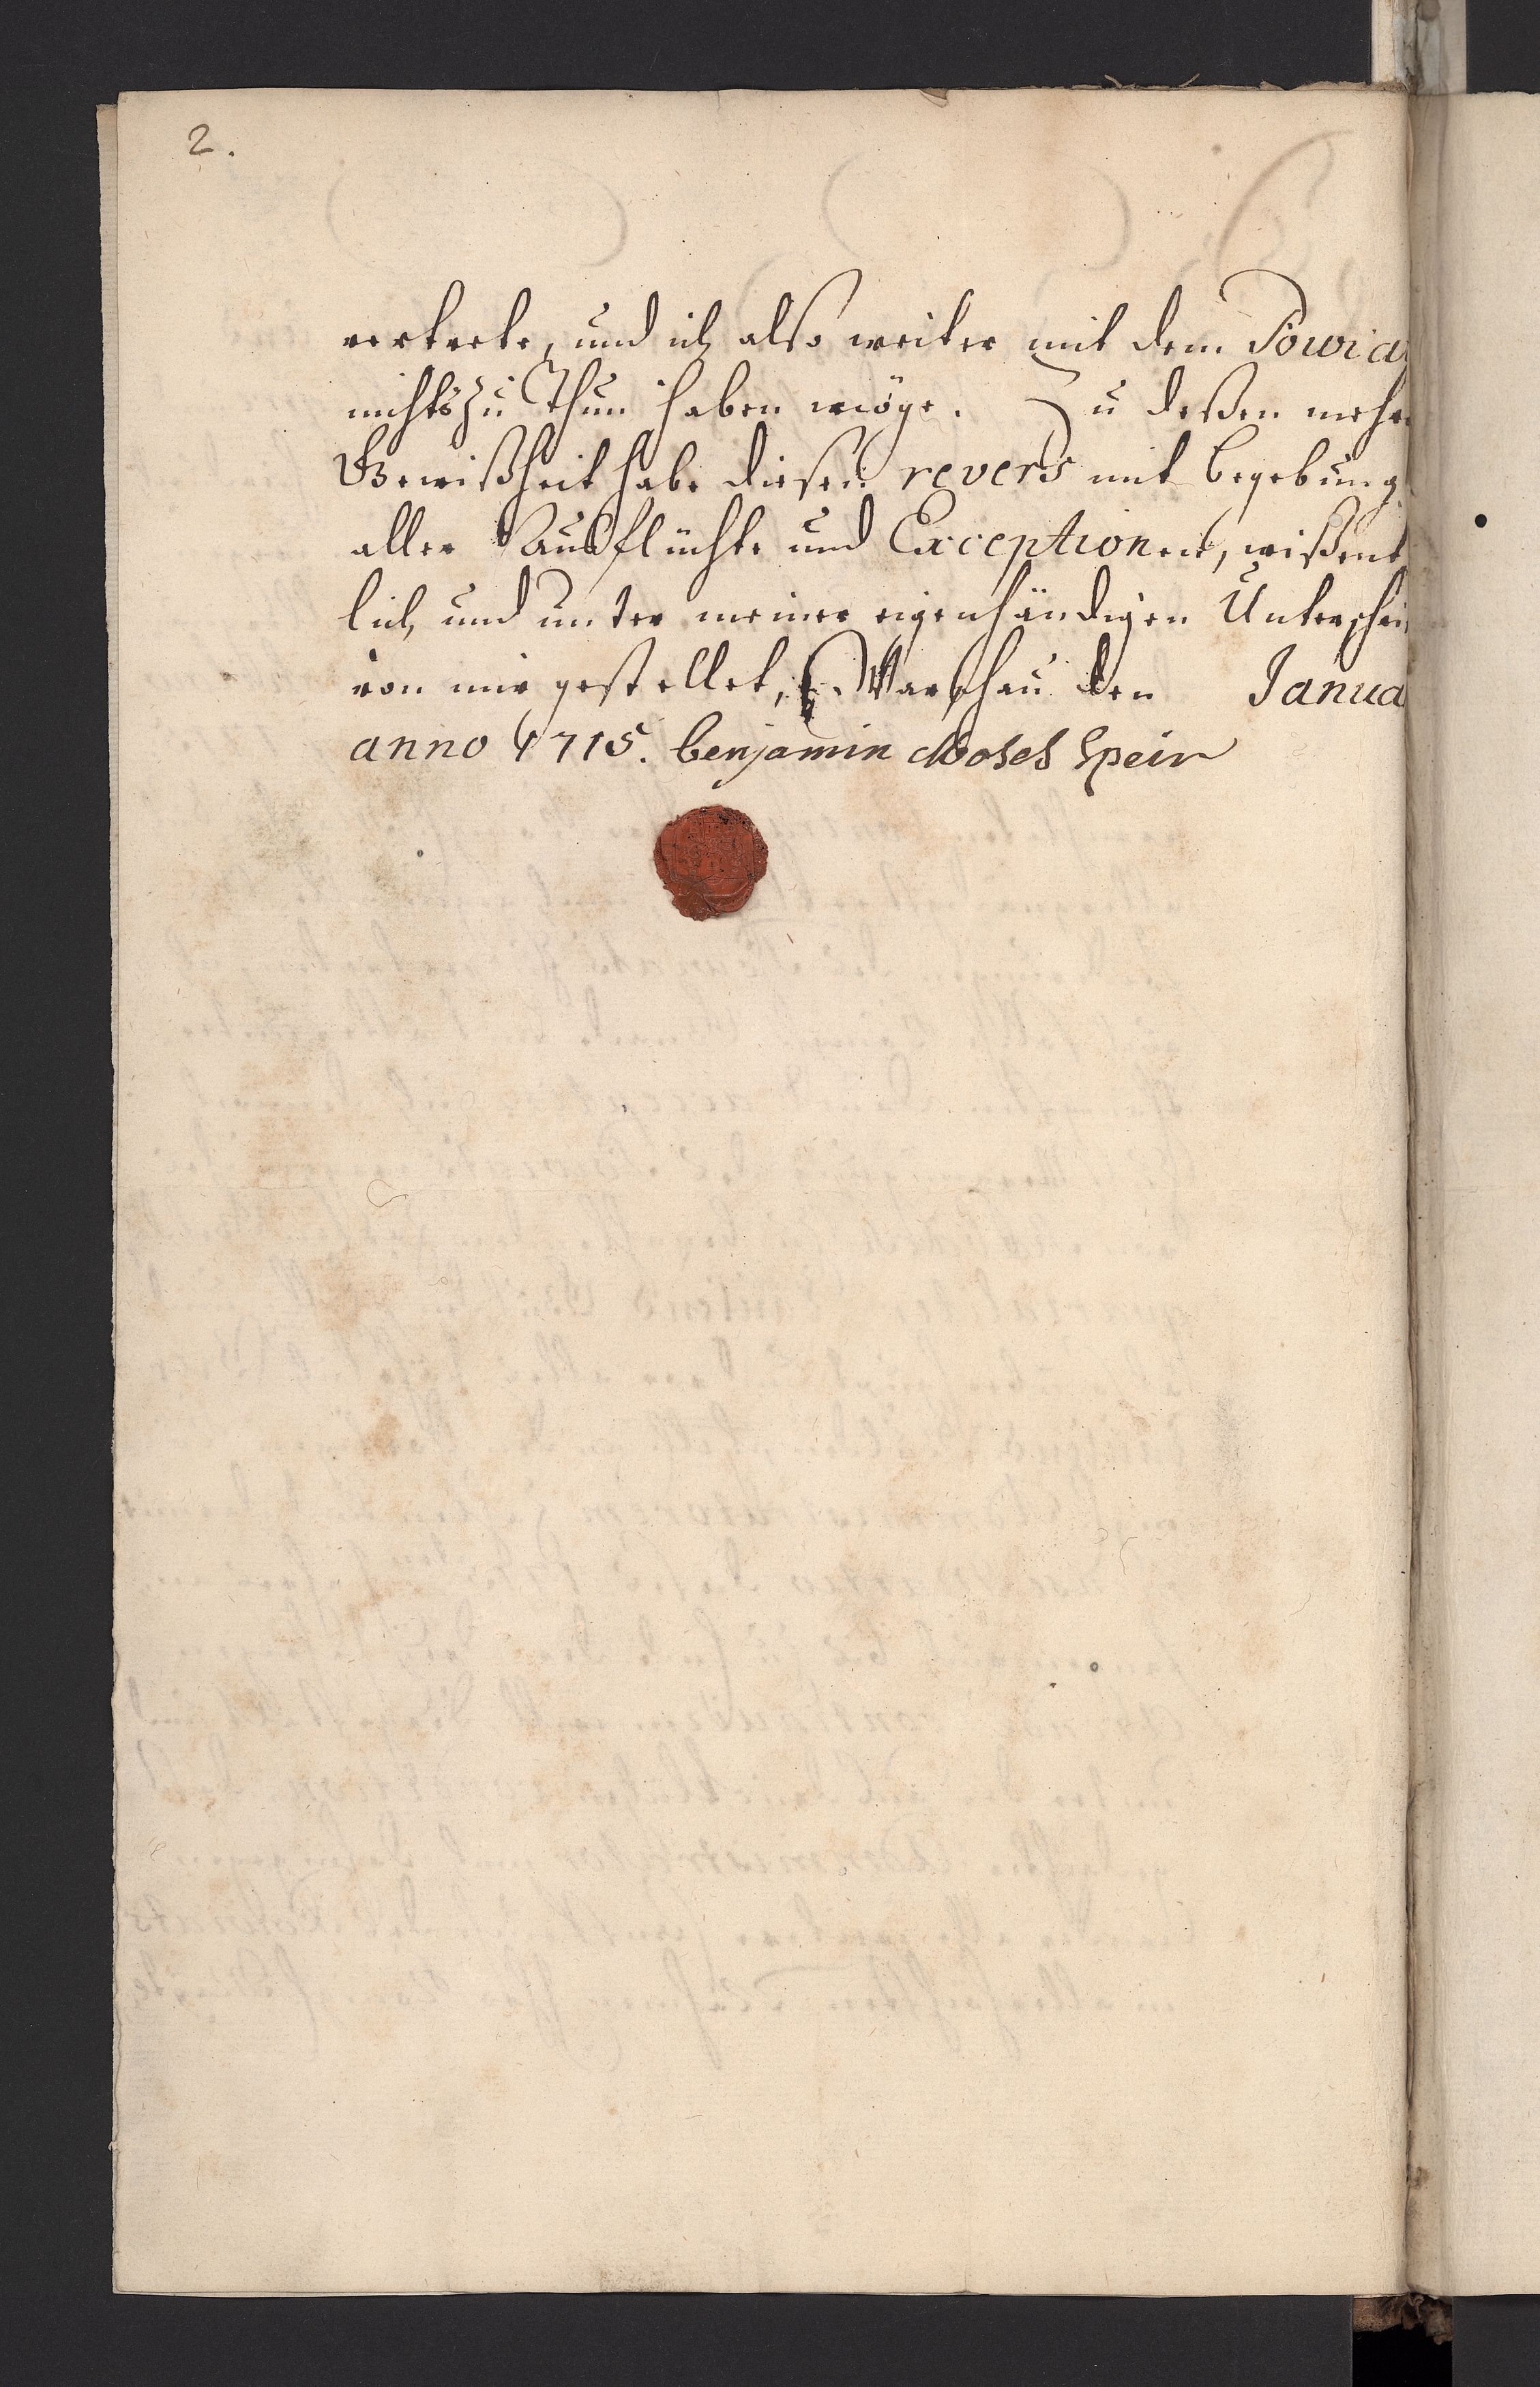 2.
vertrete, und ich also weiter mit dem Powia
nichts zu thun haben möge. Zu deßen mehr
Gewißheit habe diesen revers mit begebung
aller Ausflüchte und Exceptionen, wißent
lich, und unter meiner eigenhändigen Unterschri
von mir gestellet, Warschau den Janua
anno 1715. benjamin Moses Speir